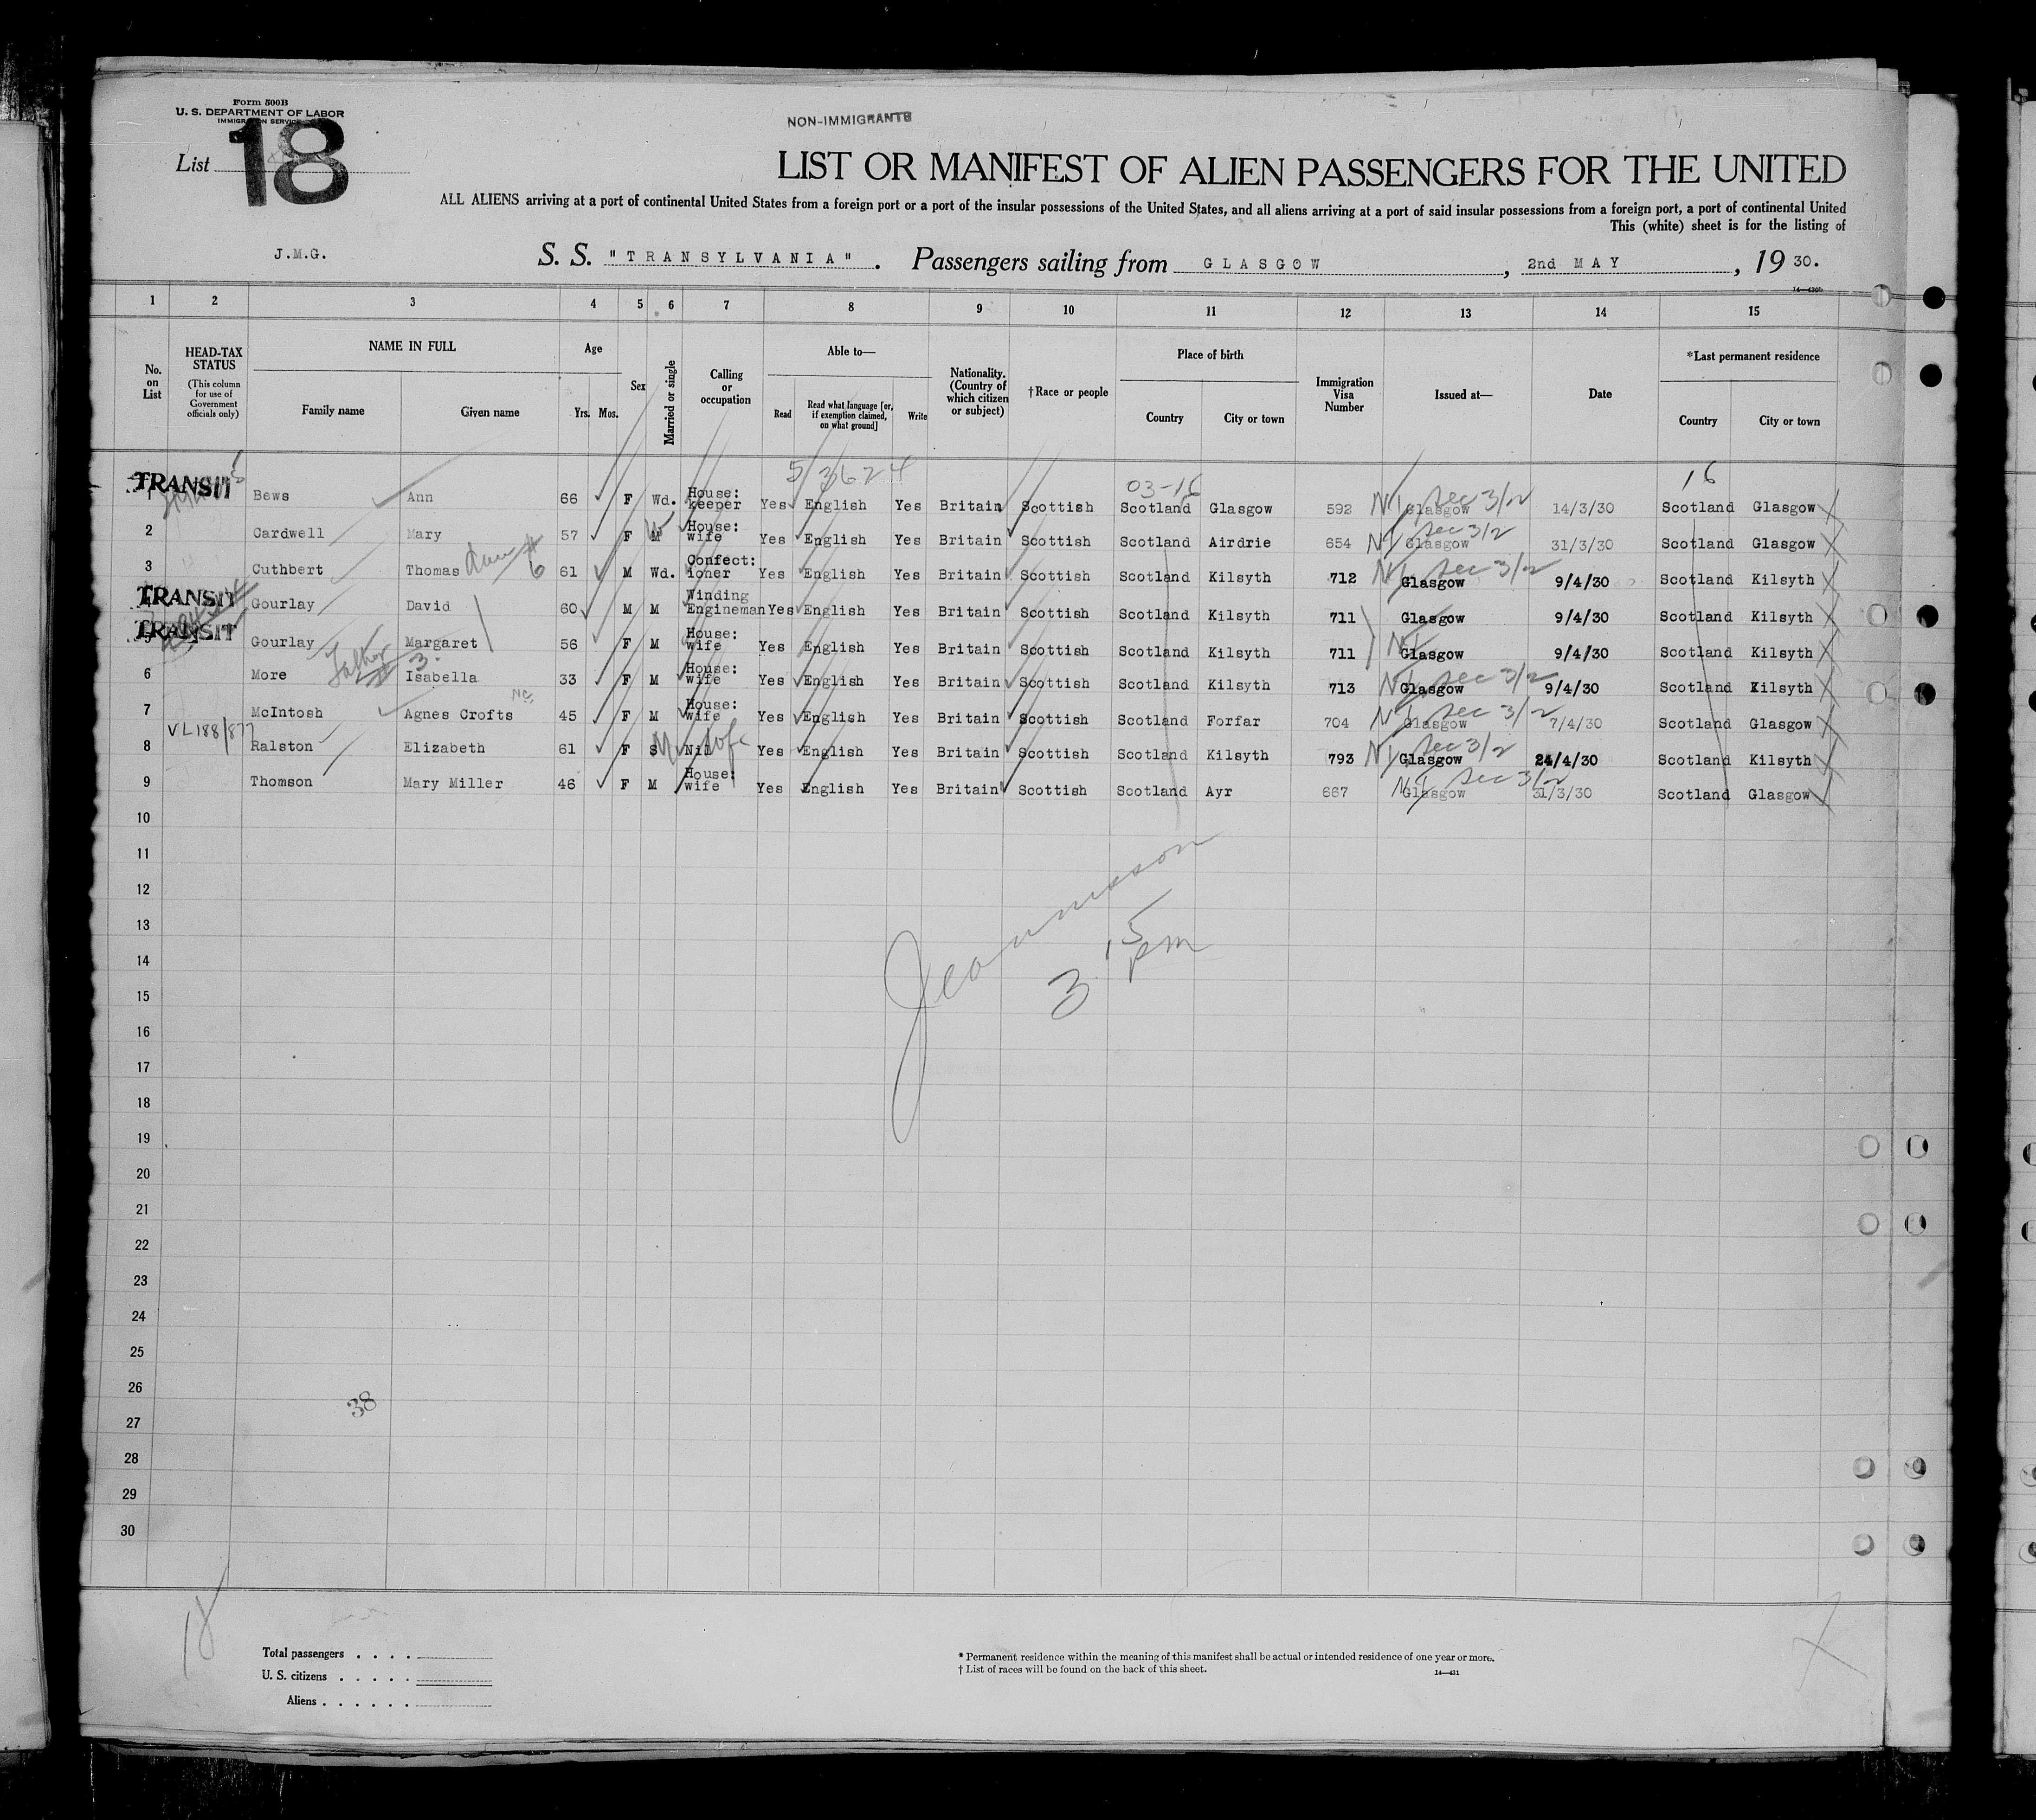 Form 500B
U. S. DEPARTMENT OF LABOR
IMMIGRATION SERVICE
List 18
NON-IMMIGRANTS
LIST OR MANIFEST OF ALIEN PASSENGERS FOR THE UNITED
ALL ALIENS arriving at a port of continental United States from a foreign port or a port of the insular possessions of the United States, and all aliens arriving at a port of said insular possessions from a foreign port, a port of continental United
This (white) sheet is for the listing of
J.M.G. S. S. "TRANSYLVANIA". Passengers sailing from GLASGOW, 2nd MAY, 1930.
1 2 3 4 5 6 7 8 9 10 11 12 13 14 15
No. on List
HEAD-TAX STATUS
(This column for use of Government officials only)
NAME IN FULL
Family name Given name
Age
Yrs. Mos.
Sex
Married or single
Calling or occupation
Able to—
Read
Read what language [or, if exemption claimed, on what ground]
Write
Nationality. (Country of which citizen or subject)
†Race or people
Place of birth
Country City or town
Immigration Visa Number
Issued at—
Date
*Last permanent residence
Country City or town
5/3624 03-16 16
TRANSIT 1 Bews Ann 66 F Wd. House: keeper Yes English Yes Britain Scottish Scotland Glasgow 592 NI Glasgow Sec 3/2 14/3/30 Scotland Glasgow
2 Cardwell Mary 57 F M House: wife Yes English Yes Britain Scottish Scotland Airdrie 654 NI Glasgow Sec 3/2 31/3/30 Scotland Glasgow
3 Cuthbert Thomas 61 M Wd. Confect: ioner Yes English Yes Britain Scottish Scotland Kilsyth 712 NI Glasgow Sec 3/2 9/4/30 Scotland Kilsyth
TRANSIT Gourlay David 60 M M Winding Engineman Yes English Yes Britain Scottish Scotland Kilsyth 711 Glasgow 9/4/30 Scotland Kilsyth
TRANSIT 5 Gourlay Margaret 56 F M House: wife Yes English Yes Britain Scottish Scotland Kilsyth 711 NI Glasgow 9/4/30 Scotland Kilsyth
6 More Father 3 Isabella 33 F M House: wife Yes English Yes Britain Scottish Scotland Kilsyth 713 NI Glasgow Sec 3/2 9/4/30 Scotland Kilsyth
7 McIntosh Agnes Crofts NC 45 F M House: wife Yes English Yes Britain Scottish Scotland Forfar 704 NI Glasgow Sec 3/2 7/4/30 Scotland Glasgow
8 VL188/877 Ralston Elizabeth 61 F S M Nil wife Yes English Yes Britain Scottish Scotland Kilsyth 793 NI Glasgow Sec 3/2 24/4/30 Scotland Kilsyth
9 Thomson Mary Miller 46 F M House: wife Yes English Yes Britain Scottish Scotland Ayr 667 NI Glasgow Sec 3/2 31/3/30 Scotland Glasgow
10
11
12
13
14
15
16
17
18
19
20
21
22
23
24
25
26
27
28
29
30
3 15 pm
38
18
Total passengers
U. S. citizens
Aliens
* Permanent residence within the meaning of this manifest shall be actual or intended residence of one year or more.
† List of races will be found on the back of this sheet.
14—431